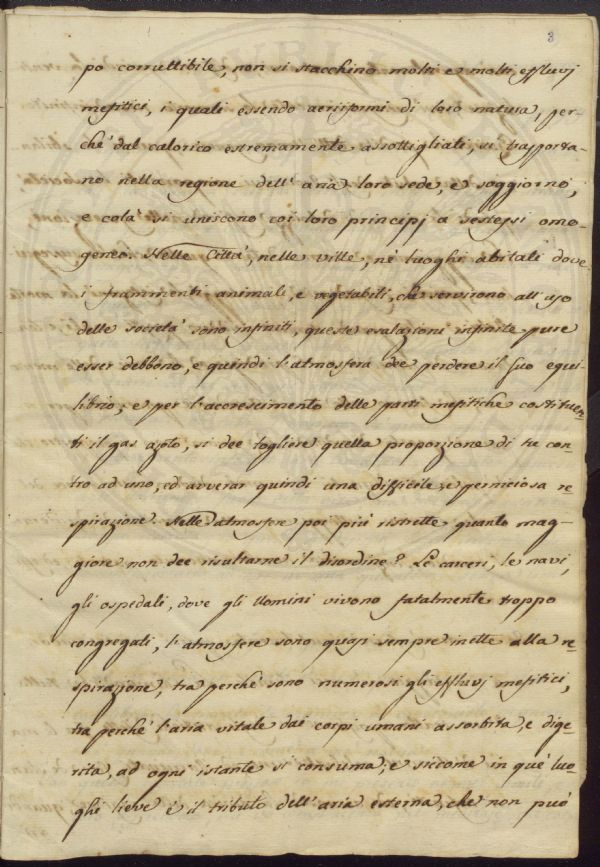 3
po corruttibile, non si stacchino molti e molti effluvj
mefitici, i quali essendo aerissimi di loro natura, per-
chè dal calorico estremamente assottigliati, si trasporta-
no nella regione dell'aria loro sede, e soggiorno,
e colà si uniscono coi loro principj a sestessi omo-
genei. Nelle Città, nelle ville, nè luoghi abitati dove
i frammenti animali, e vegetabili, che servirono all'uso
delle società sono infiniti, queste esalazioni infinite pure
esser debbono, e quindi l'atmosfera dee perdere il suo equi-
librio; e per l'accrescimento delle parti mefitiche costituen-
ti il gas azoto, si dee togliere quella proporzione di tre con-
tro ad uno, ed avverar quindi una difficile, e perniciosa re
spirazione. Nelle atmosfere poi più ristrette quanto mag-
giore non dee risultarne il disordine? Le carceri, le navi,
gli ospedali, dove gli Uomini vivono fatalmente troppo
congregati, l'atmosfere sono quasi sempre inette alla re-
spirazione, tra perchè sono numerosi gli effluvj mefitici,
tra perchè l'aria vitale dai corpi umani assorbita, e dige-
rita, ad ogni istante si consuma; e siccome in què luo-
ghi lieve è il tributo dell'aria esterna, che non può